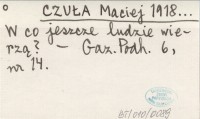 CZUŁA Maciej 1918...
W co jeszcze ludzie wie-
rzą? – Gaz. Podh. 6,
nr 14.